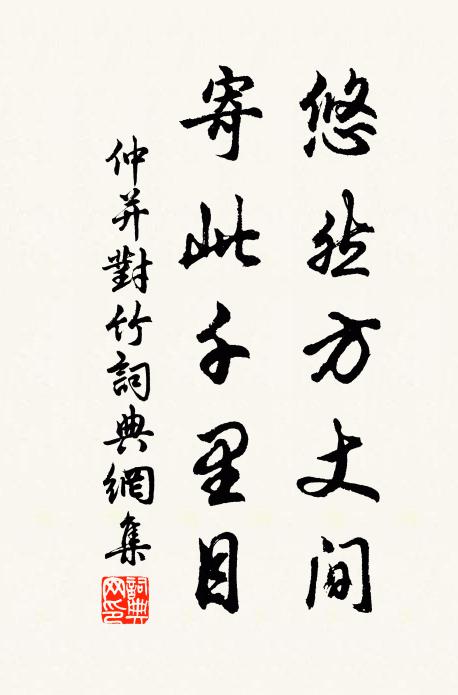 悠然方丈間
寄此千里目
仲并對竹詞典網集
詞典网印